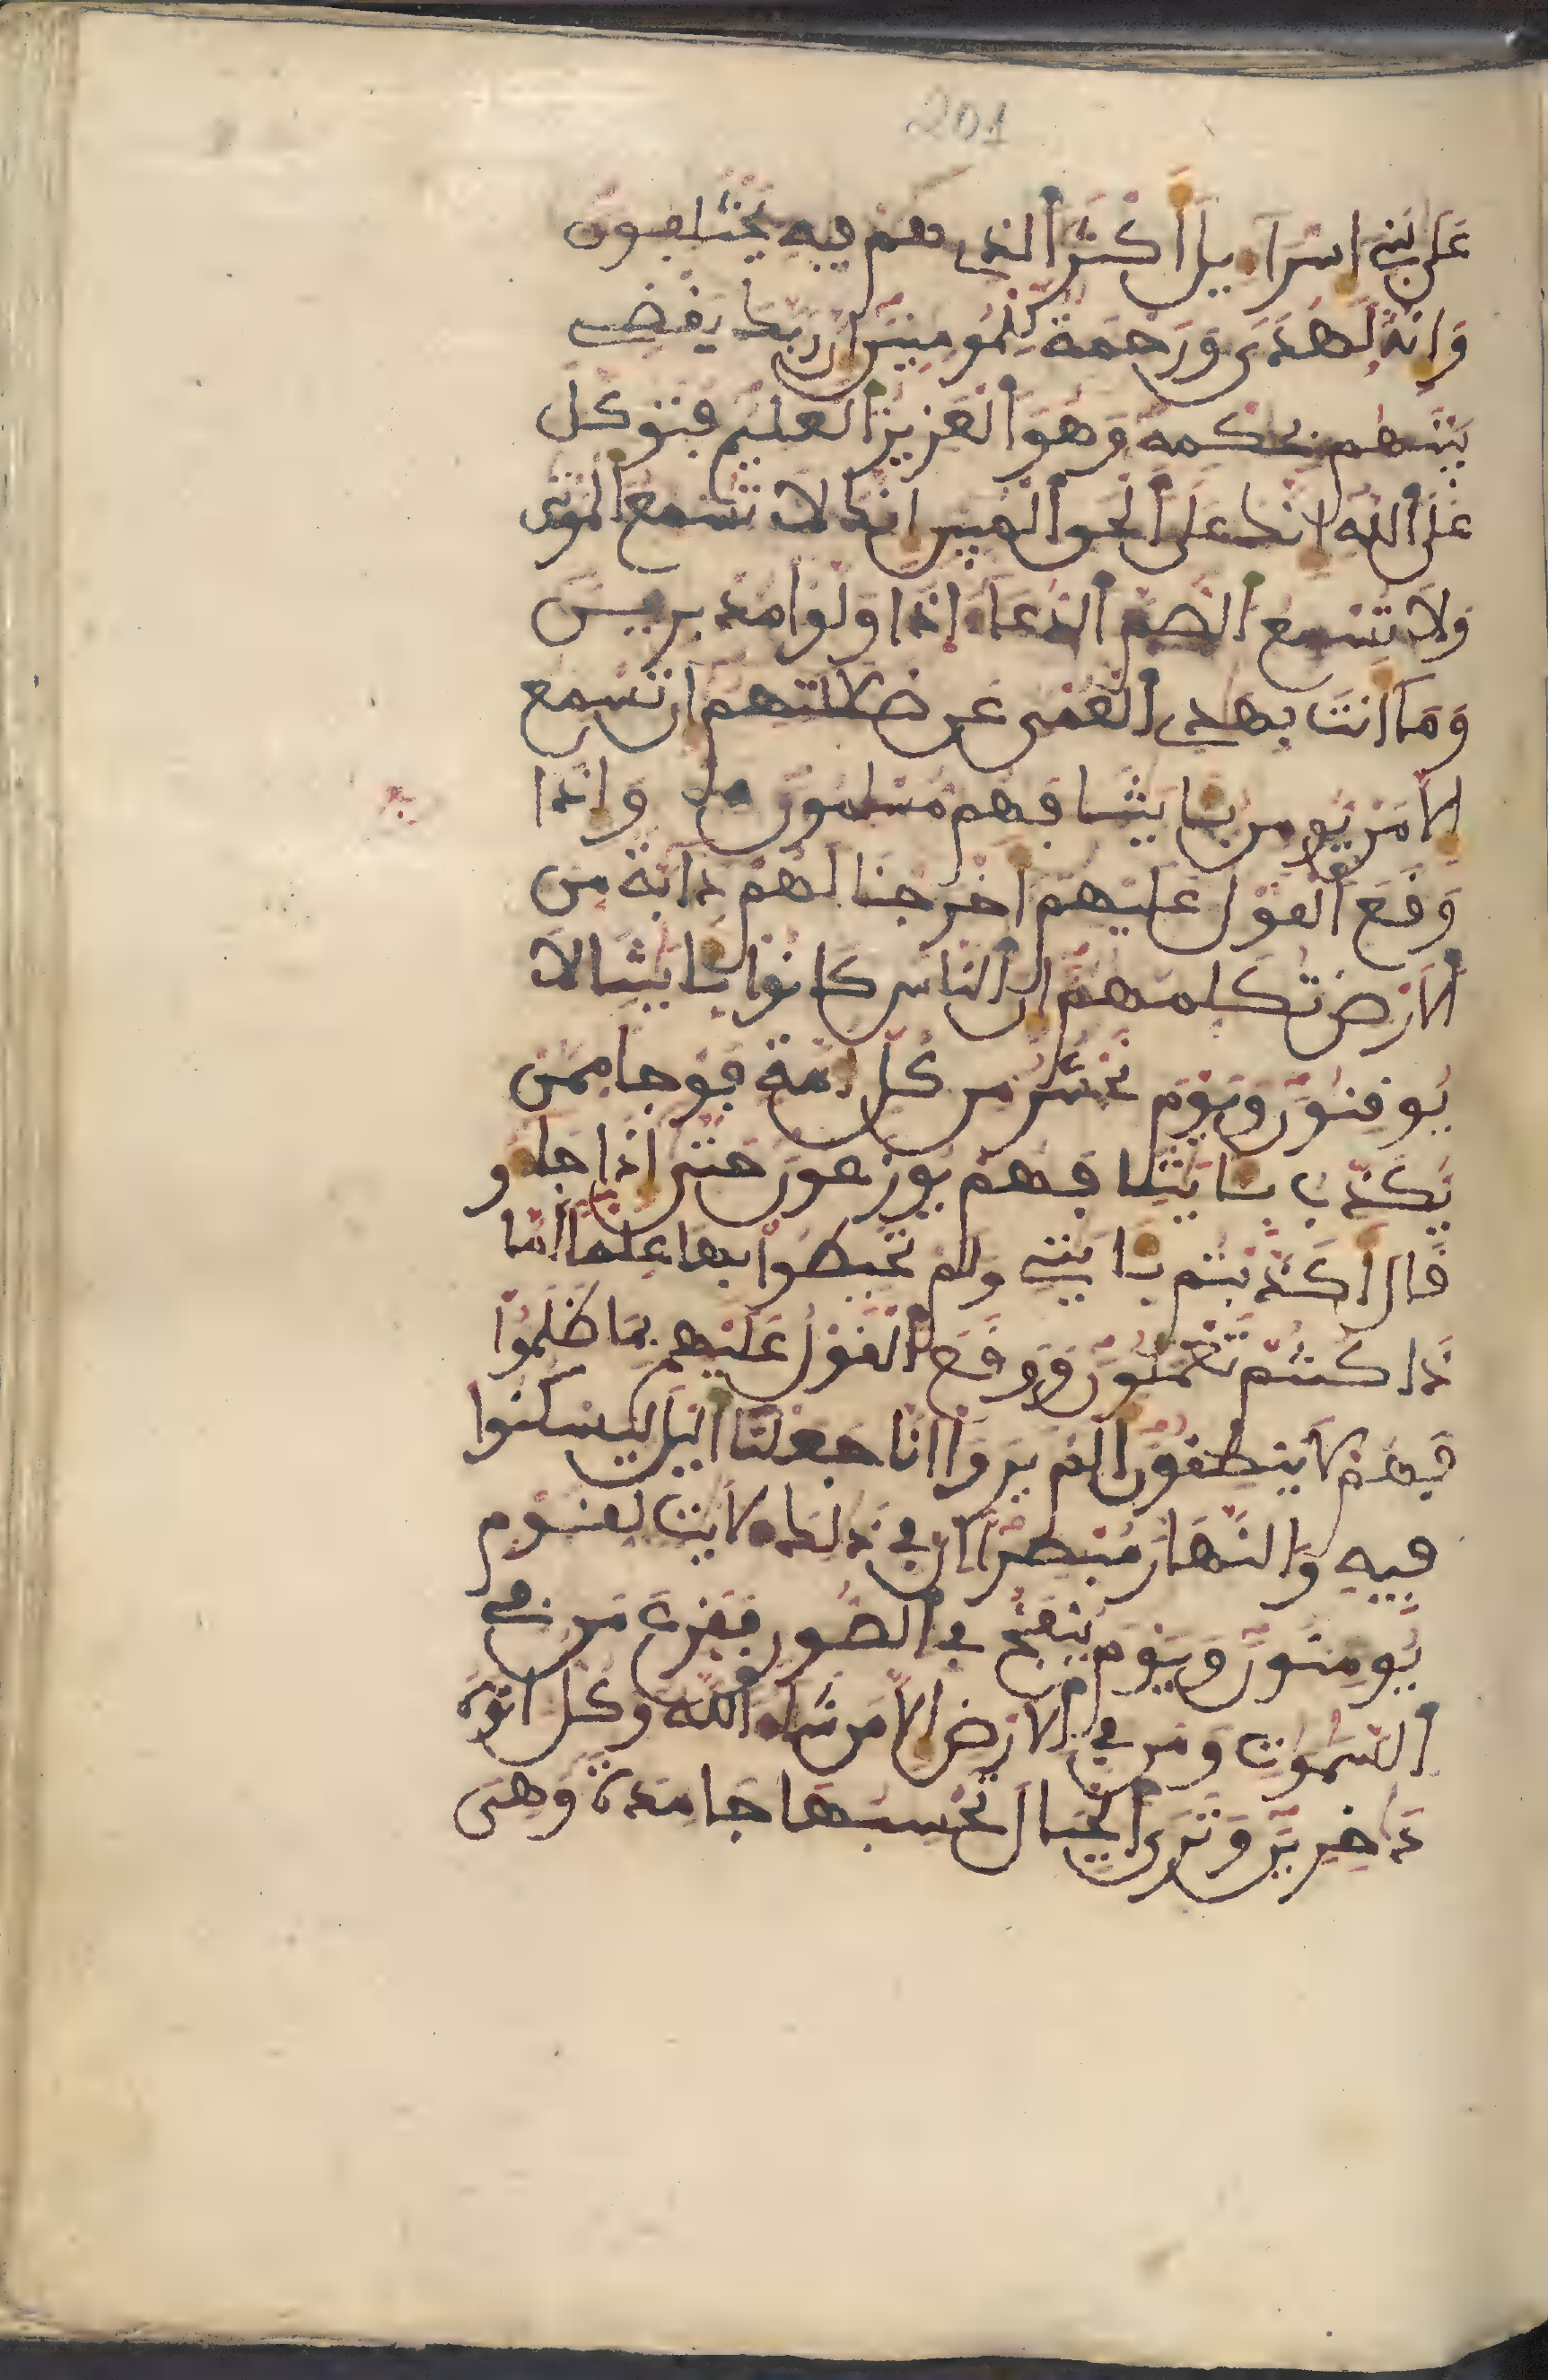 201
عَلَى بَنِي اسْرَاءِيلَ أَكْثَرَ ٱلذِى هُمْ فِيهِ يَخْتَلِفُونَ
وَإِنَّهُ لَهُدًى وَرَحْمَةٌ لِّلْمُومِنِينَ إِنَّ رَبَّكَ يَقْضِى
بَيْنَهُم بِحُكْمِهِ وَهُوَ ٱلْعَزِيزُ ٱلْعَلِيمُ فَتَوَكَّلْ
عَلَى ٱللَّهِ إِنَّكَ عَلَى ٱلْحَقِّ ٱلْمُبِينِ إِنَّكَ لَا تُسْمِعُ ٱلْمَوْتَى
وَلَا تُسْمِعُ ٱلصُّمَّ ٱلدُّعَاءَ إِذَا وَلَّوْا مُدْبِرِينَ
وَمَا أَنتَ بِهَٰدِى ٱلْعُمْىِ عَن ضَلَٰلَتِهِمْ إِن تُسْمِعُ
إِلَّا مَنْ يُومِنُ بِـَٔايَٰتِنَا فَهُم مُّسْلِمُونَ وَإِذَا
وَقَعَ ٱلْقَوْلُ عَلَيْهِمْ أَخْرَجْنَا لَهُمْ دَابَّةً مِنَ
ٱلَارْضِ تُكَلِّمُهُمْ إِنَّ ٱلنَّاسَ كَانُوا بِـَٔايَٰتِنَا لَا
يُوقِنُونَ وَيَوْمَ نَحْشُرُ مِن كُلِّ أُمَّةٍ فَوْجًا مِمَّنْ
يُّكَذِّبُ بِـَٔايَٰتِنَا فَهُمْ يُوزَعُونَ حَتَّى إِذَا جَاءُو
قَالَ أَكَذَّبْتُم بِـَٔايَٰتِى وَلَمْ تُحِيطُوا بِهَا عِلْمًا أَمَّا
ذَا كُنتُمْ تَعْمَلُونَ وَوَقَعَ ٱلْقَوْلُ عَلَيْهِم بِمَا ظَلَمُوا
فَهُمْ لَا يَنطِقُونَ أَلَمْ يَرَوَا أَنَّا جَعَلْنَا ٱلَّيْلَ لِيَسْكُنُوا
فِيهِ وَالنَّهَارَ مُبْصِرًا إِنَّ فِى ذَٰلِكَ لَأَيَٰتٍ لِّقَوْمٍ
يُومِنُونَ وَيَوْمَ يُنفَخُ فِى ٱلصُّورِ فَفَزِعَ مَن فِى
ٱلسَّمَٰوَٰتِ وَمَن فِى ٱلَارْضِ إِلَّا مَن شَاءَ ٱللَّهُ وَكُلٌّ ـاتُوهُ
دَٰخِرِينَ وَتَرَى ٱلْجِبَالَ تَحْسِبُهَا جَامِدَةً وَهِىَ